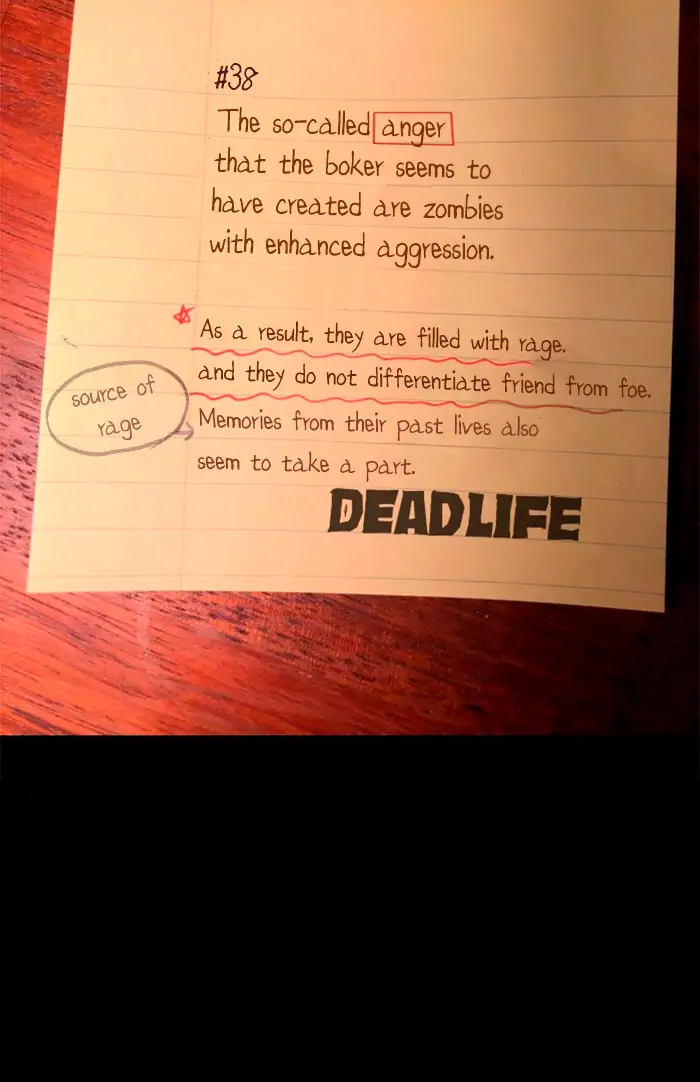 #38
The so-called anger
that the boker seems to
have created are zombies
with enhanced aggression.
As a result, they are filled with rage.
and they do not differentiate friend from foe.
source of
rage
Memories from their past lives also
seem to take a part.
DEADLIFE